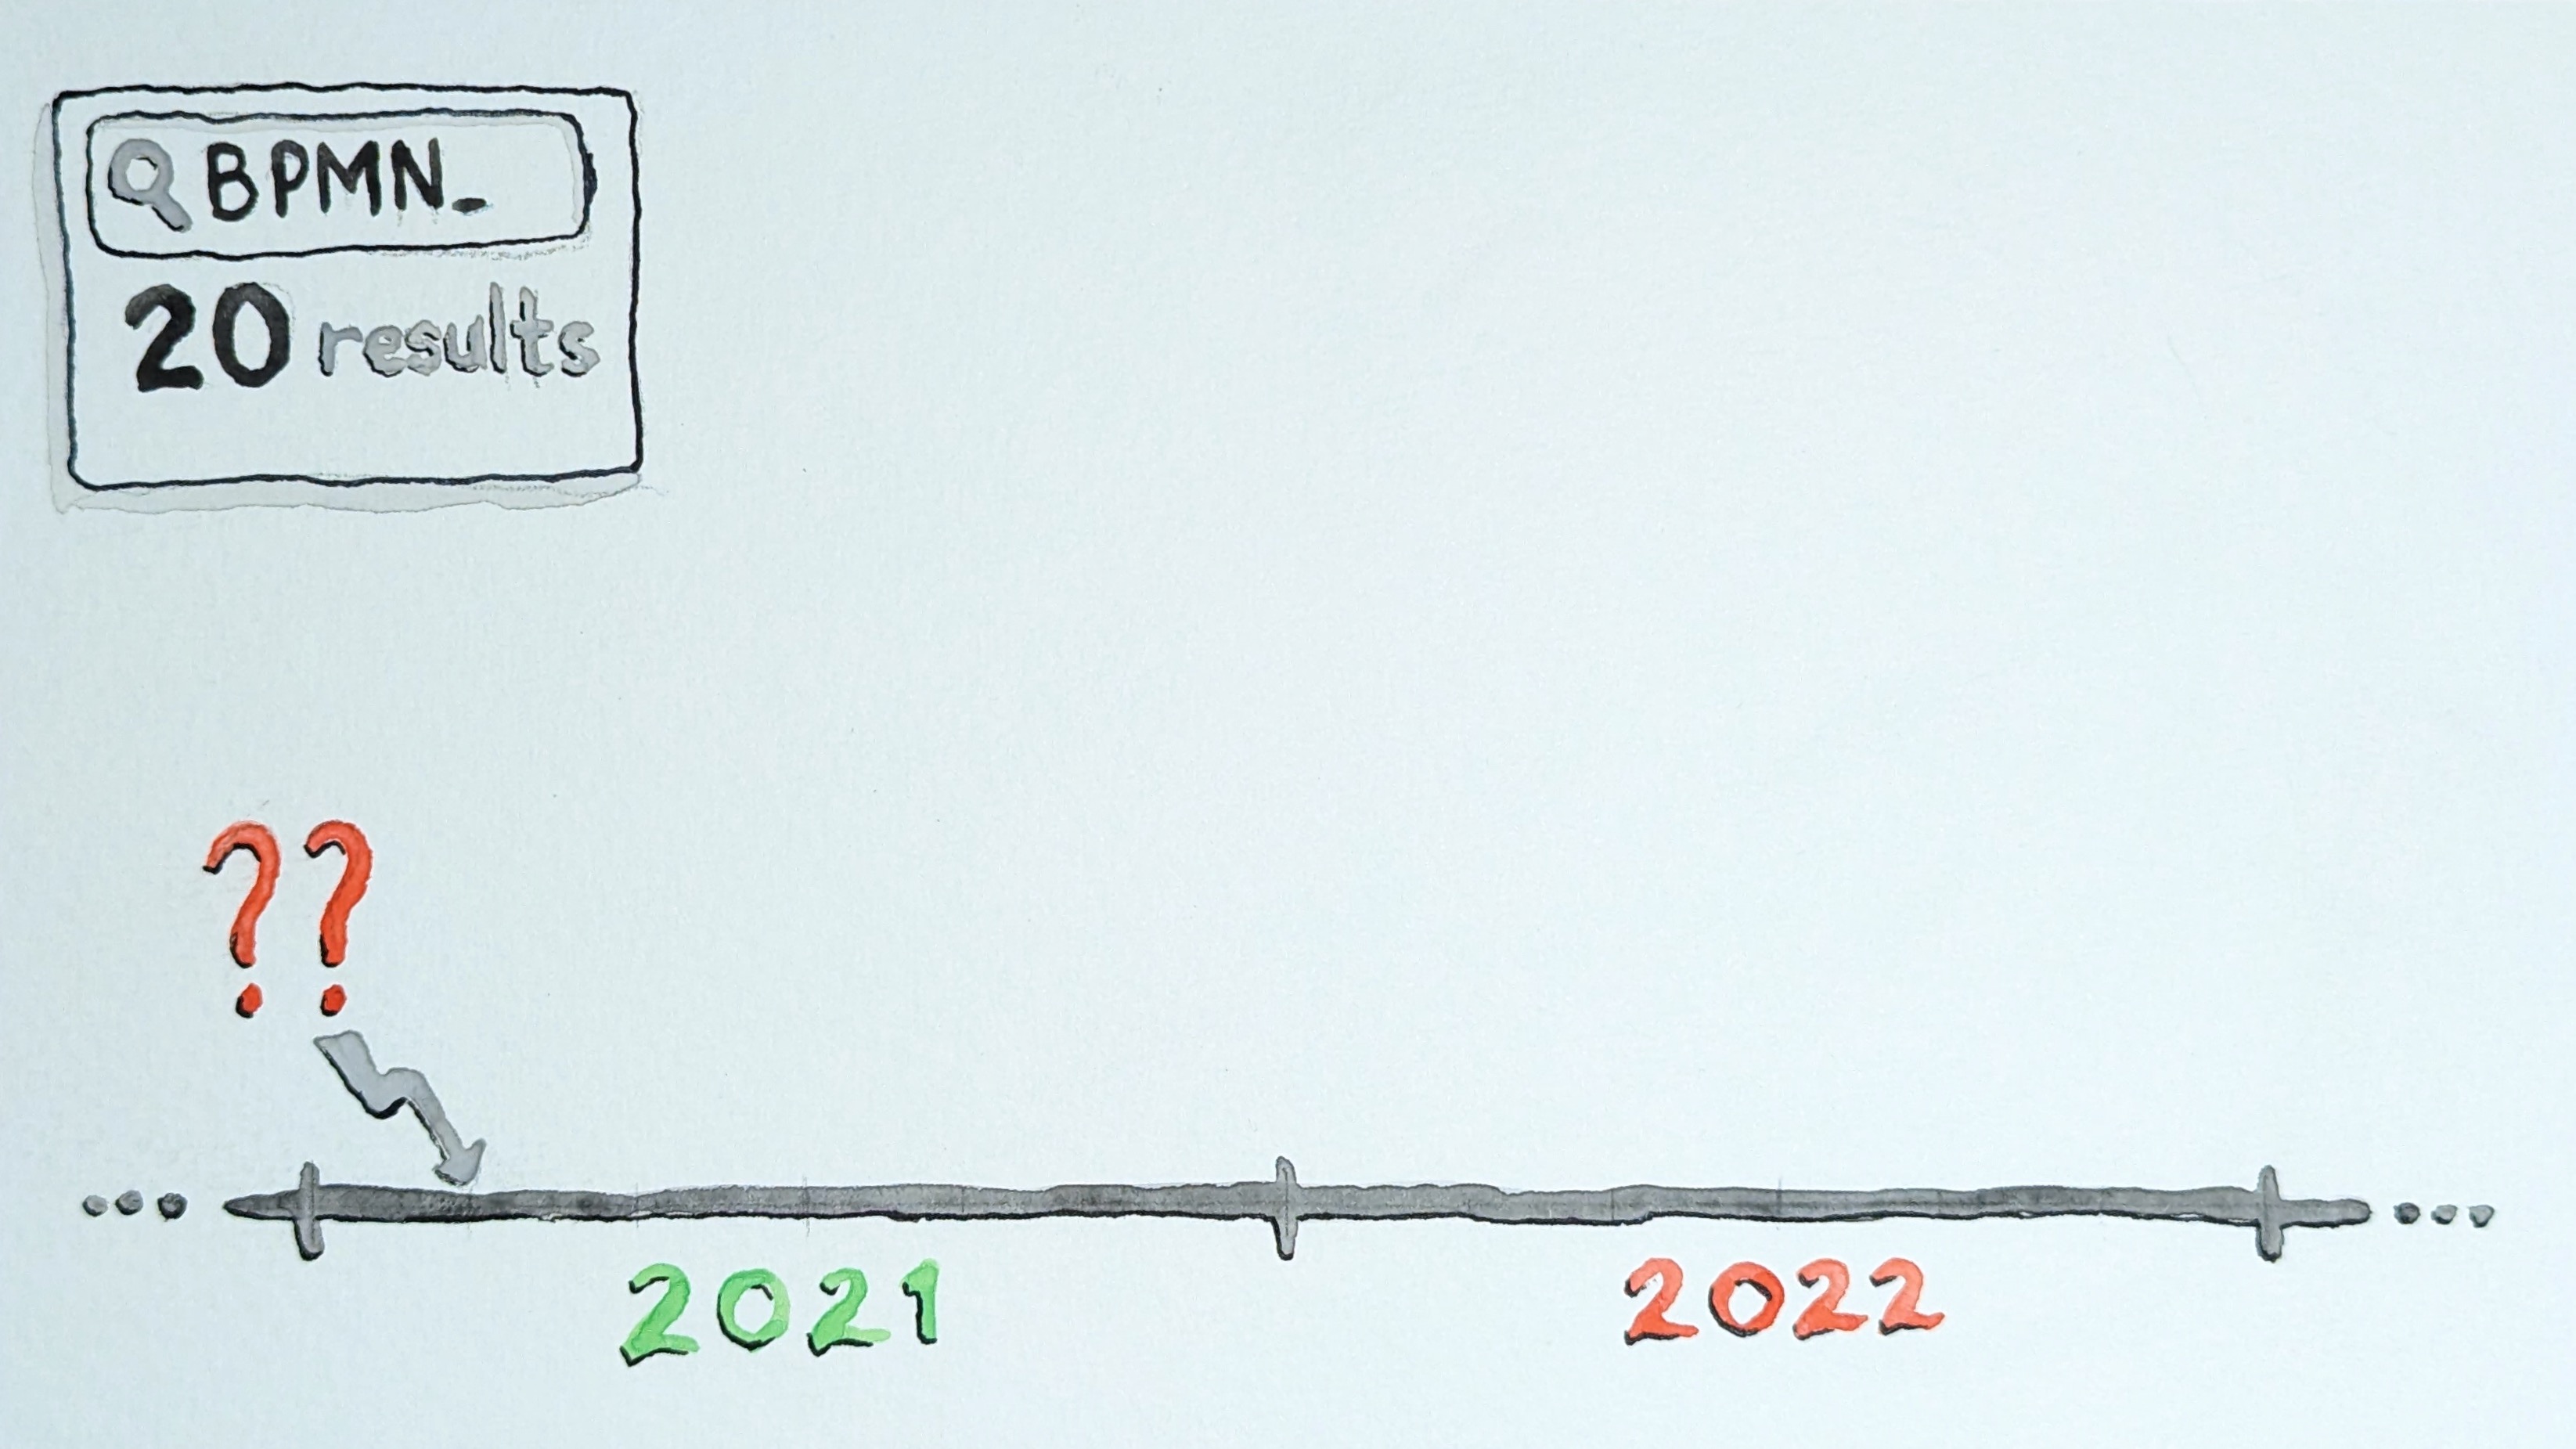 BPMN_
20 results
??
2021
2022